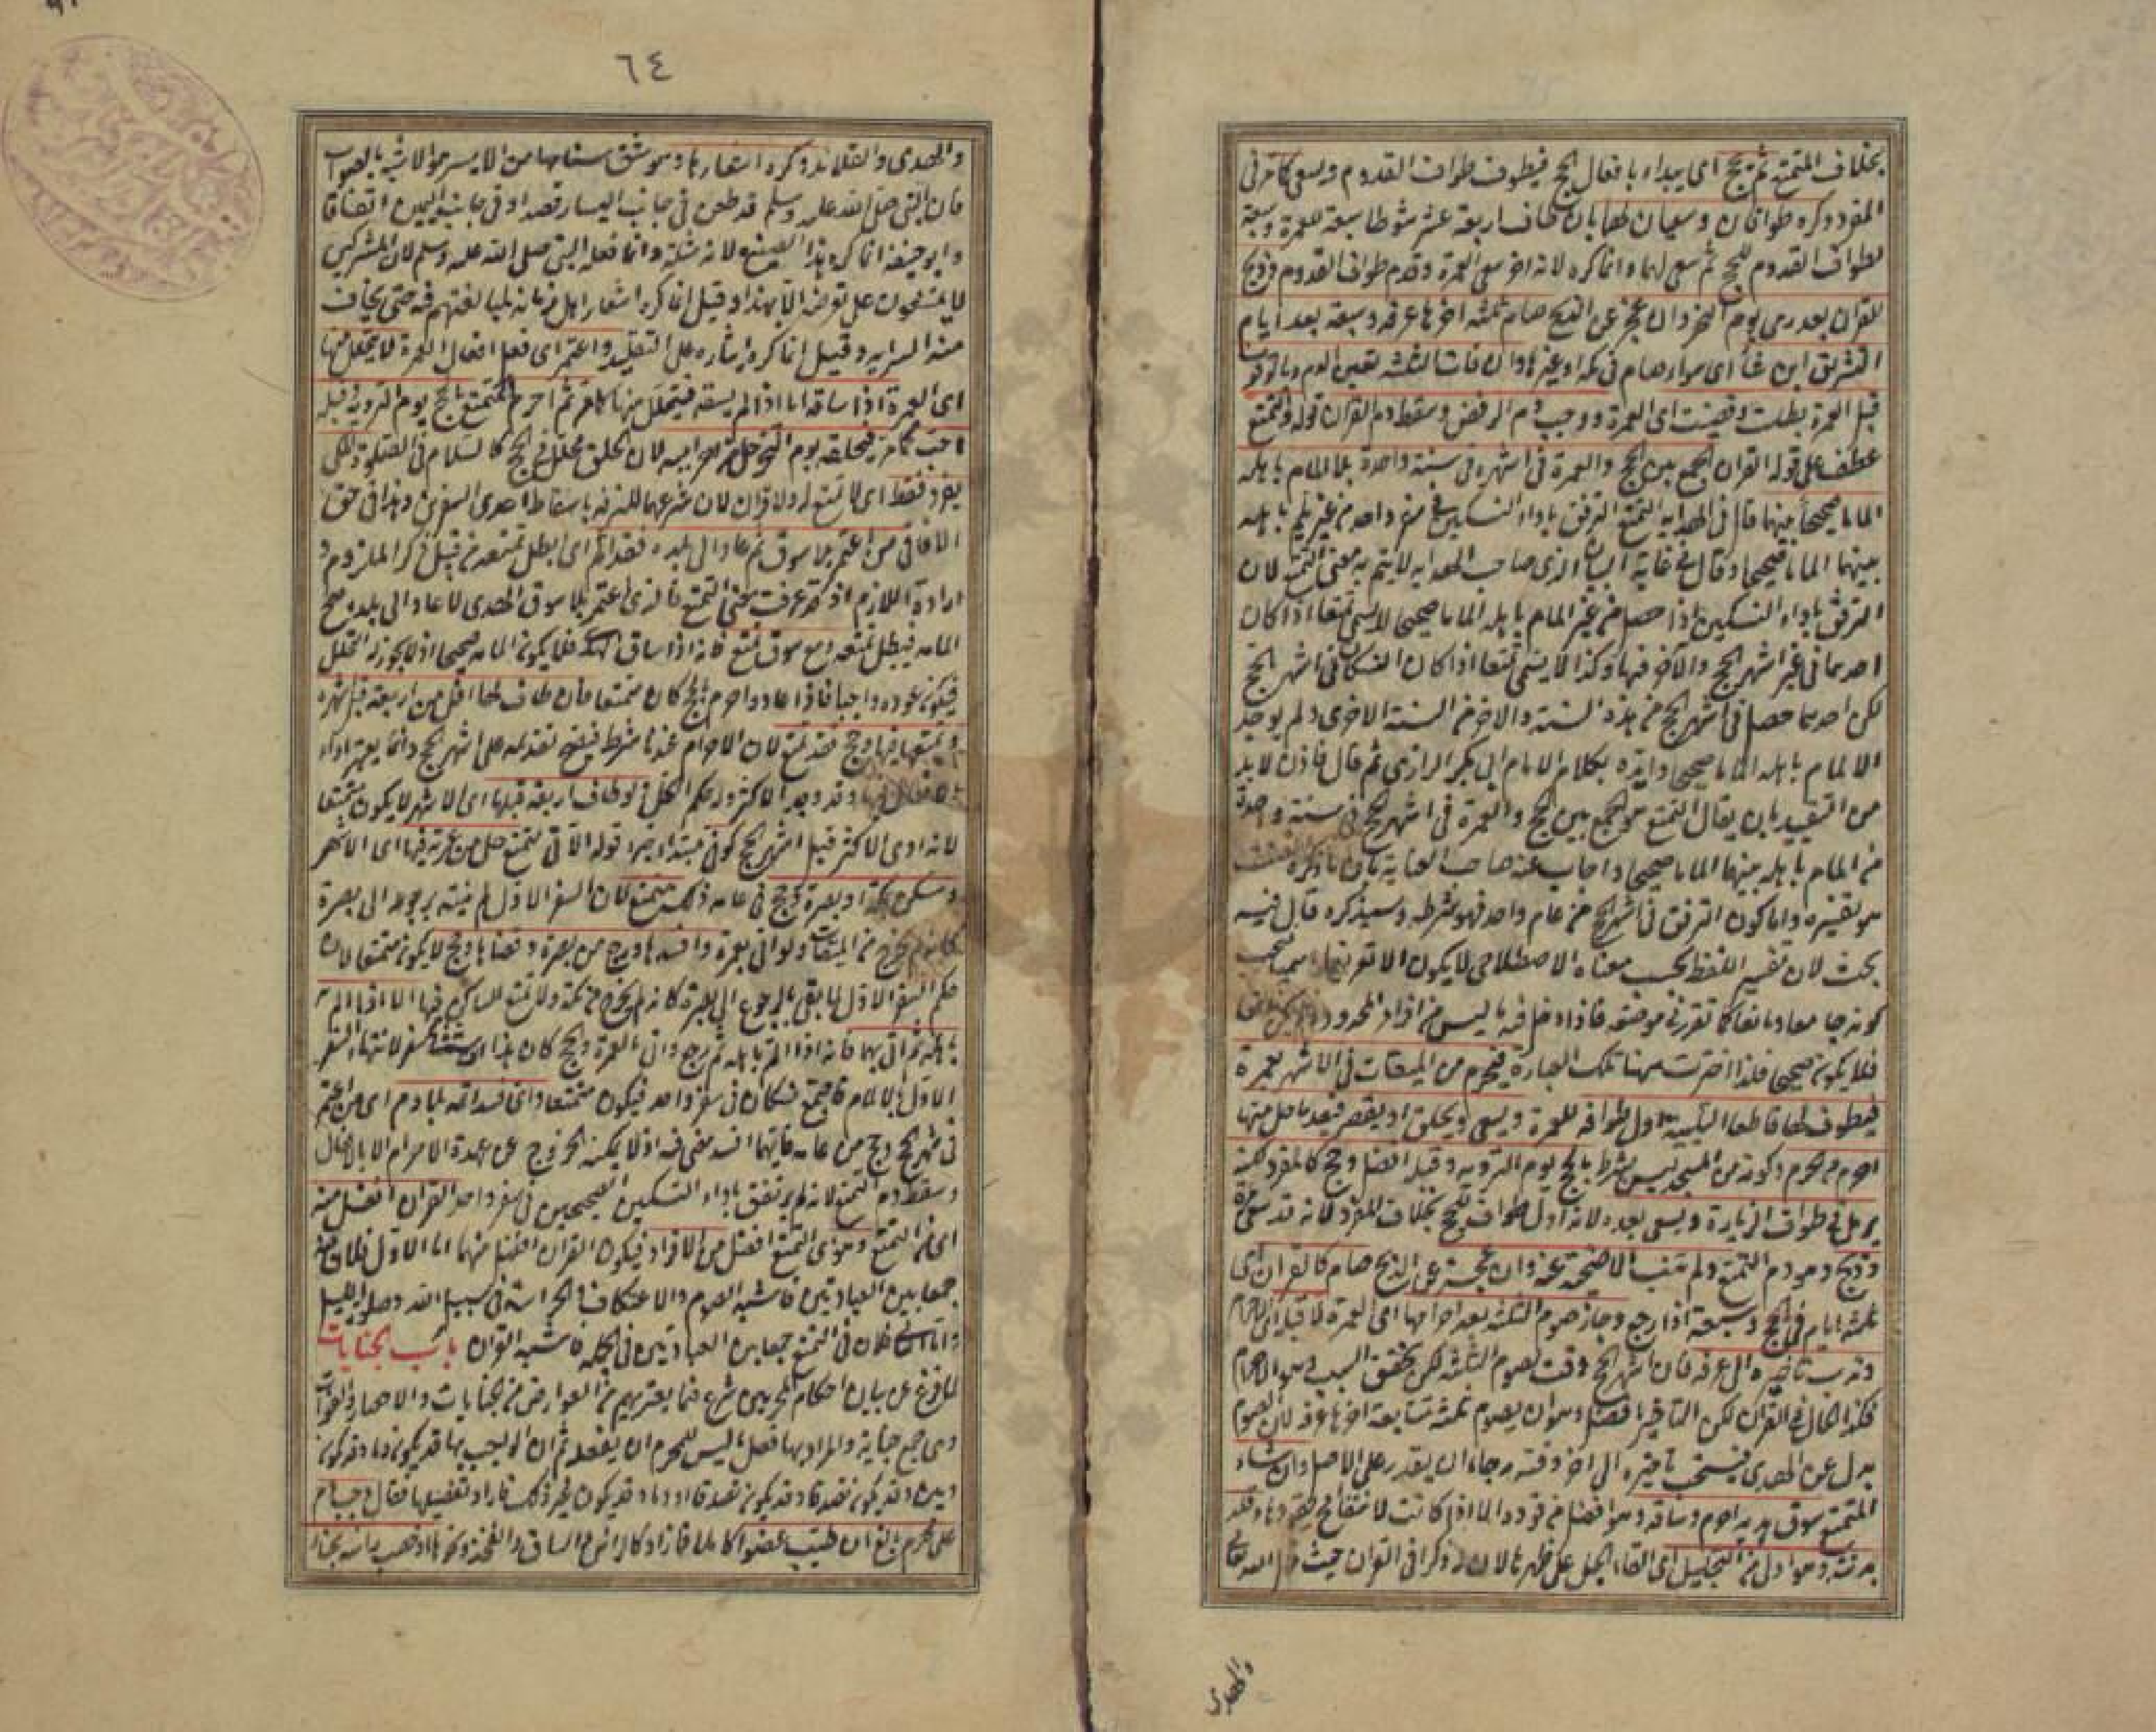 بخلاف المتمتع ثم يحج اى يبداء بافعال الحج فيطوف طواف القدوم ويسعى كما مر فى
المفرد وكره طوافان وسعيان لهما بان طاف اربعة عشر شوطا سبعة للعمرة وسبعة
لطواف القدوم للحج ثم سعى لهما وانما كره لانه اخر سعى العمرة وقدم طواف القدوم وذبح
للقران بعد رمى يوم النحر وان عجز عن الذبح صام ثلثة اخرها عرفه وسبعة بعد ايام
التشريق اين شأ اى سواء صام فى مكه او غيرها وان فات الثلثة تعين الدم وبالوقوف
قبل العمرة بطلت وقضيت اى العمرة ووجب دم الرفض وسقط دم القران قوله والتمتع
عطف على قوله القران الجمع بين الحج والعمرة فى اشهره فى سنة واحدة بلا المام باهله
الماما صحيحا بينهما قال فى الهدايه التمتع الترفق باداء النسكين فى سفر واحد من غير يلم باهله
بينهما الماما صحيحا وقال فى غاية البيان الذى صاحب الهدايه لايتم به معنى التمتع لان
الترفق باداء النسكين اذا حصل من غير المام باهله الماما صحيحا لايسمى تمتعا اذا كان
احدهما فى غير اشهر الحج والآخر فيها وكذا لايسمى تمتعا اذا كان النسكان فى اشهر الحج
لكن احدهما حصل فى اشهر الحج من هذه السنة والاخر من السنة الاخرى ولم يوجد
الالمام باهله الماما صحيحا وايده بكلام الامام ابى بكر الرازى ثم قال فاذن لابد
من التقييد بان يقال التمتع هو الجمع بين الحج والعمرة فى اشهر الحج فى سنة واحدة
من المام باهله بينهما الماما صحيحا واجاب عنه صاحب العنايه بان ما ذكره
هو تفسيره واما كون الترفق فى اشهر الحج من عام واحد فهو شرطه وسيذكره قال فيه
بحث لان تفسير اللفظ بحسب معناه الاصطلاحى لايكون الا تعريفا
كونه جامعا ومانعا كما تقرر فى موضعه فاذا دخل فيه ما ليس من افراد المحدود
فلا يكون صحيحا فلذا اخترت ههنا تلك العبارة فيحرم من الميقات فى الاشهر بعمرة
فيطوف لها قاطعا التلبية اول طوافه للعمرة ويسعى ويحلق او يقصر فبعد ما حل منها
احرم من الحرم وكونه من المسجد ليس بشرط بالحج يوم التروية وقبله افضل وحج كالمفرد لكنه
يرمل فى طواف الزيارة ويسعى بعده لانه اول طوافه للحج بخلاف المفرد لانه قد سعى مرة
وذبح وهو دم التمتع ولم تنب الاضحية عنه وان عجز عن الذبح صام كالقران اى
ثلثة ايام فى الحج وسبعة اذا رجع وجاز صوم الثلثة بعد احرامها اى العمرة لا قبله اى الاحرام
وندب تاخيره الى عرفه لان اشهر الحج وقت لصوم الثلثة لكن بتحقق السبب وهو الاحرام
فكذا الحال فى القران لكن التاخير افضل وهو ان يصوم ثلثة متتابعة اخرها عرفه لان الصوم
بدل عن الهدى فيستحب تاخيره الى اخر وقته رجاء ان يقدر على الاصل وان شاء
المتمتع سوق هديه احرم وساقه وهو افضل من قوده الا اذا كانت لا تنقاد فيقودها وقلد
بدنته وهو اولى من التجليل اى القاء الجل على ظهرها لان له ذكرا فى القران حيث قال الله تعالى
والهدى
٦٤
والهدى والقلائد وكره اشعارها وهو شق سنامها من الايسر هو الاشبه بالصواب
فان النبى صلى الله عليه وسلم قد طعن فى جانب اليسار قصدا وفى جانب اليمين اتفاقا
وابو حنيفه انما كره هذا الصنع لانه مثلة وانما فعله النبى صلى الله عليه وسلم لان المشركين
لايمتنعون على تعرضه الا بهذا وقيل انما كره اشعار اهل زمانه لمبالغتهم فيه حتى يخاف
منه السراية وقيل انما كره ايثاره على التقليد واعتمر اى فعل افعال العمرة لايتحلل منها
اى العمرة اذا ساقه اما اذا لم يسقه فيتحلل منها كما مر ثم احرم المتمتع بالحج يوم التروية وقبله
احب كما مر فبحلقه يوم النحر حل من احراميه لان الحلق محلل فى الحج كالسلام فى الصلوة والمكى
يفرد فقط اى لا تمتع له ولا قران لان شرعهما للترفه باسقاط احدى السفرين وهذا فى حق
الافاقى من اعتمر بلا سوق ثم عاد الى بلده فقد الم اى بطل تمتعه من قبيل ذكر الملزوم و
ارادة اللازم اذ قد عرفت معنى التمتع فالذى اعتمر بلا سوق الهدى لما عاد الى بلده صح
المامه فبطل تمتعه ومع سوق تمتع فانه اذا ساق الهدى فلا يكون المامه صحيحا اذ لايجوز له التحلل
فيكون عوده واجبا فاذا عاد واحرم بالحج كان متمتعا فان طاف لها اقل من اربعة قبل اشهره
وتممها فيها وحج فقد تمتع لان الاحرام عندنا شرط فيصح تقديمه على اشهر الحج وانما يعتبر اداء
الافعال فيها وقد وجد الاكثر وله حكم الكل ولو طاف اربعة قبلها اى الاشهر لايكون متمتعا
لانه ادى الاكثر قبل اشهر الحج كوفى مبتداء خبره قوله الاتى متمتع حل من عمرته فيها اى الاشهر
وسكن بمكة او بصرة وحج فى عامه ذلك متمتع لان السفر الاول لم ينته برجوعه الى بصرة
فكانه لم يخرج من الميقات ولو اتى بعمرة وافسدها ورجع من بصرة وقضاها وحج لايكون متمتعا لان
حكم السفر الاول لما بقى بالرجوع الى البصرة كانه لم يخرج من مكة ولا تمتع للساكن فيها الا اذا الم
باهله ثم اتى بهما فانه اذا الم باهله ثم رجع واتى بالعمرة والحج كان هذا انشاء سفر لانتهاء السفر
الاول بالالمام فاجتمع نسكان فى سفر واحد فيكون متمتعا واى افسد اتمه بلا دم اى من اعتمر
فى اشهر الحج وحج من عامه فايهما افسد مضى فيه اذ لا يمكنه الخروج عن عهدة الاحرام الا بالافعال
وسقط دم التمتع لانه لم يرتفق باداء النسكين الصحيحين فى سفر واحد القران افضل منه
اى من التمتع وهو اى التمتع افضل من الافراد فيكون القران افضل منهما اما الاول فلان فيه
جمعا بين العبادتين فاشبه الصوم والاعتكاف والحراسة فى سبيل الله وصلوة الليل
واما الثانى فلان فى التمتع جمعا بين العبادتين فى الجملة فاشبه القران باب الجنايات
لما فرغ عن بيان احكام المحرمين شرع فيما يعتريهم من العوارض من الجنايات والاحصار والفوات
وهى جمع جناية والمراد بها فعل ما ليس للمحرم ان يفعله ثم ان الواجب بها قد يكون دما وقد يكون
دمين وقد يكون تصدقا وقد يكون تصدقا او دما وقد يكون غير ذلك فاراد تفصيلها فقال وجب دم
على محرم بالغ ان طيب عضوا كاملا فما زاد كالراس والساق والفخذ ونحوها او خضب راسه بحناء